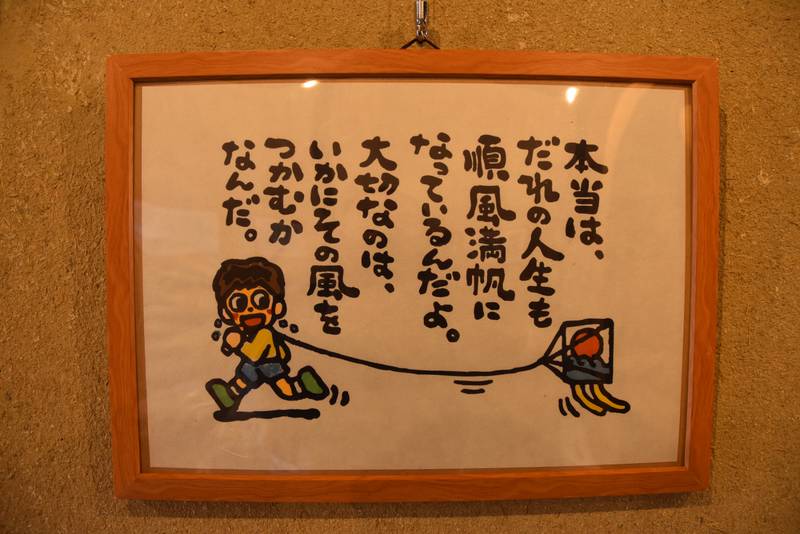 本当は、
だれの人生も
順風満帆に
なっているんだよ。
大切なのは、
いかにその風を
つかむか
なんだ。